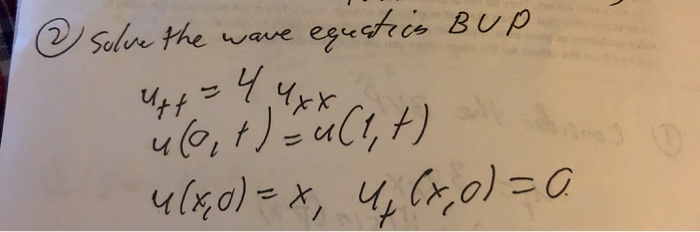 ② Solve the wave equation BVP
u_tt = 4 u_xx
u(0,t) = u(1,t)
u(x,0) = x, u_t(x,0) = 0